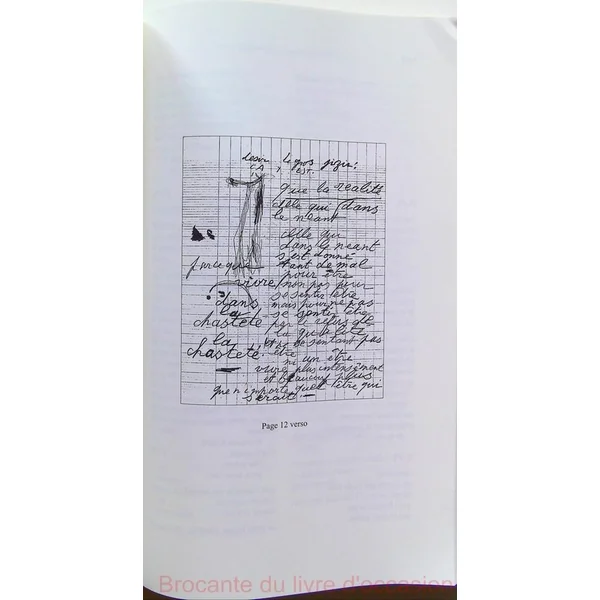 le gros gizir:
CA , EST.
que la realité
celle qui dans
le néant
celle qui
dans le néant
s'est donné
parce que tant de mal
pour être
vivre, non pas pour
se sentir être
dans mais pour ne pas
la se sentir être
chasteté par le refus de
la qualité
la, et ne se sentant pas
chasteté, être
ni un être
vivre plus intensément
et beaucoup plus
que n'importe quel être qui
serait.
Page 12 verso
Brocante du livre d'occasion